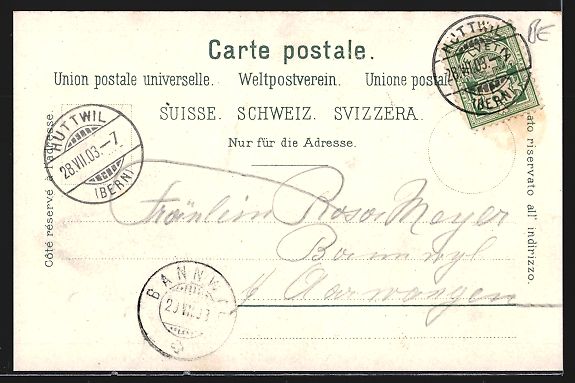 BE
Carte postale.
Union postale universelle. Weltpostverein. Unione postale
SUISSE. SCHWEIZ. SVIZZERA.
Nur für die Adresse.
Côté réservé à l'adresse.
lato riservato all' indirizzo.
HUTTWIL
28.VII.03.-7
(BERN)
HUTTWIL
28.VII.03.
(BERN)
Fräulein Rosa Meyer
Bannwyl
b/ Aarwangen
BANNWIL
29.VII.03